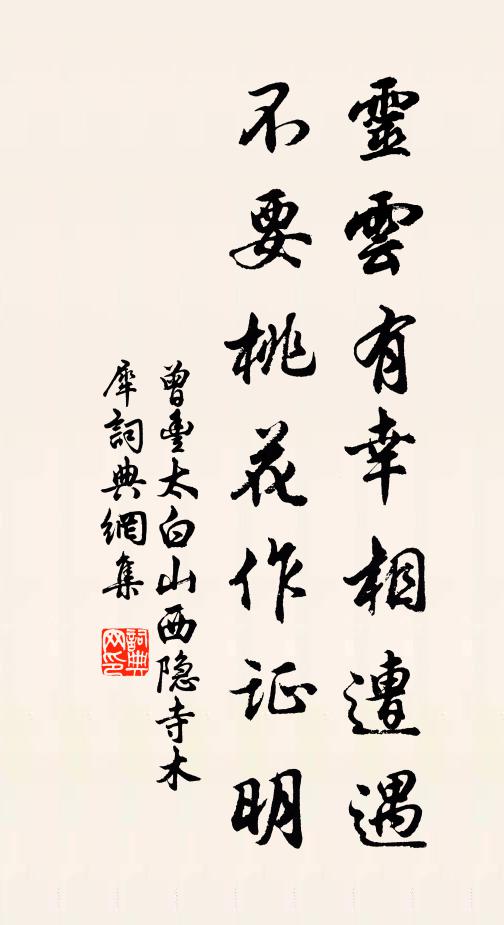 靈雲有幸相遭遇
不要桃花作证明
曾豊太白山西隐寺木
犀詞典網集
詞典
网印